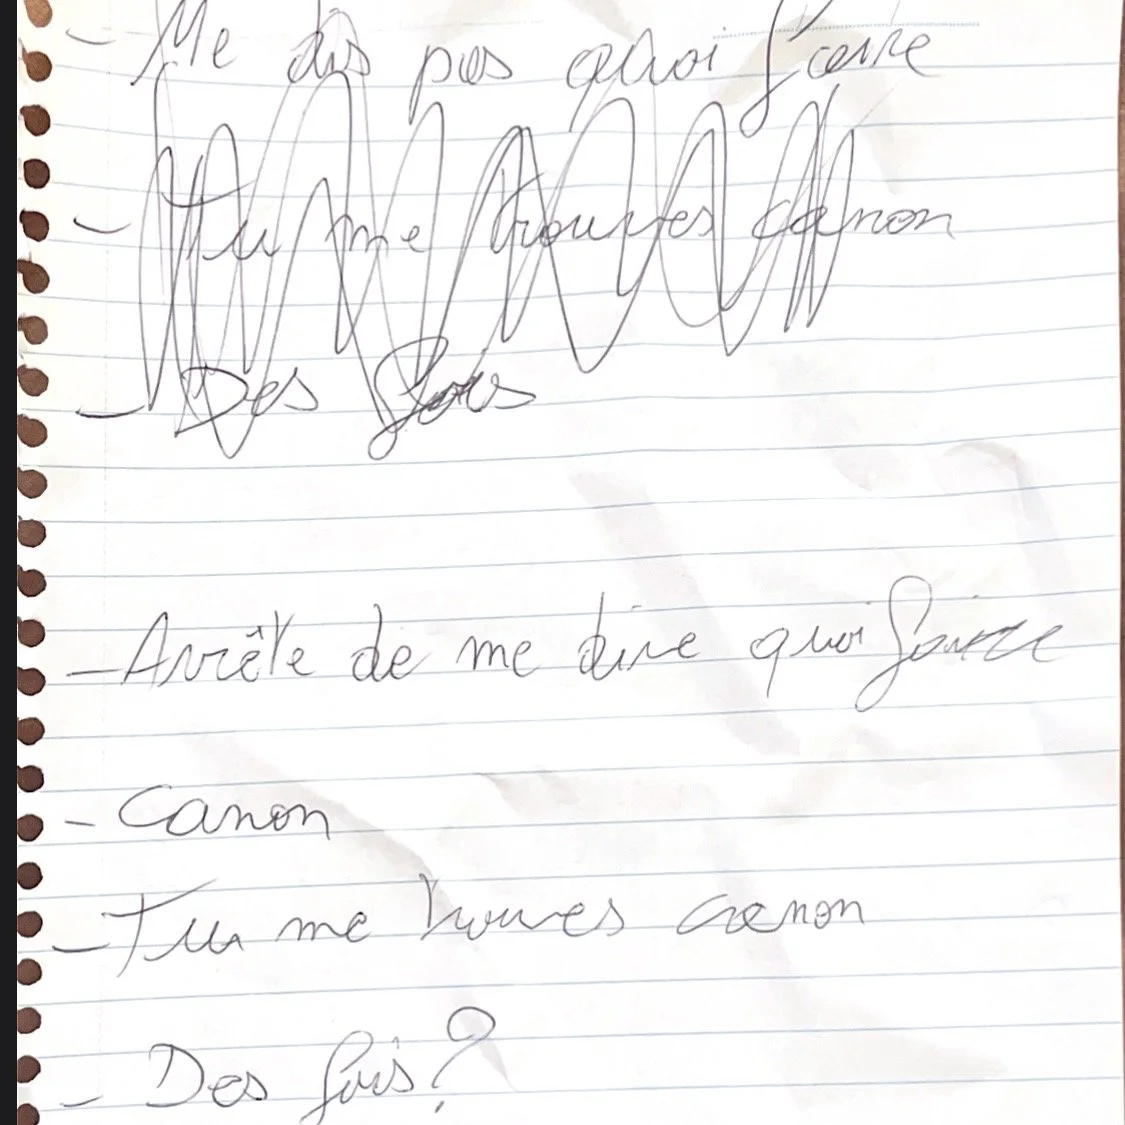 - Me dis pas quoi faire
- Tu me trouves canon
- Des fois
- Arrête de me dire quoi faire
- Canon
- Tu me trouves canon
- Des fois?